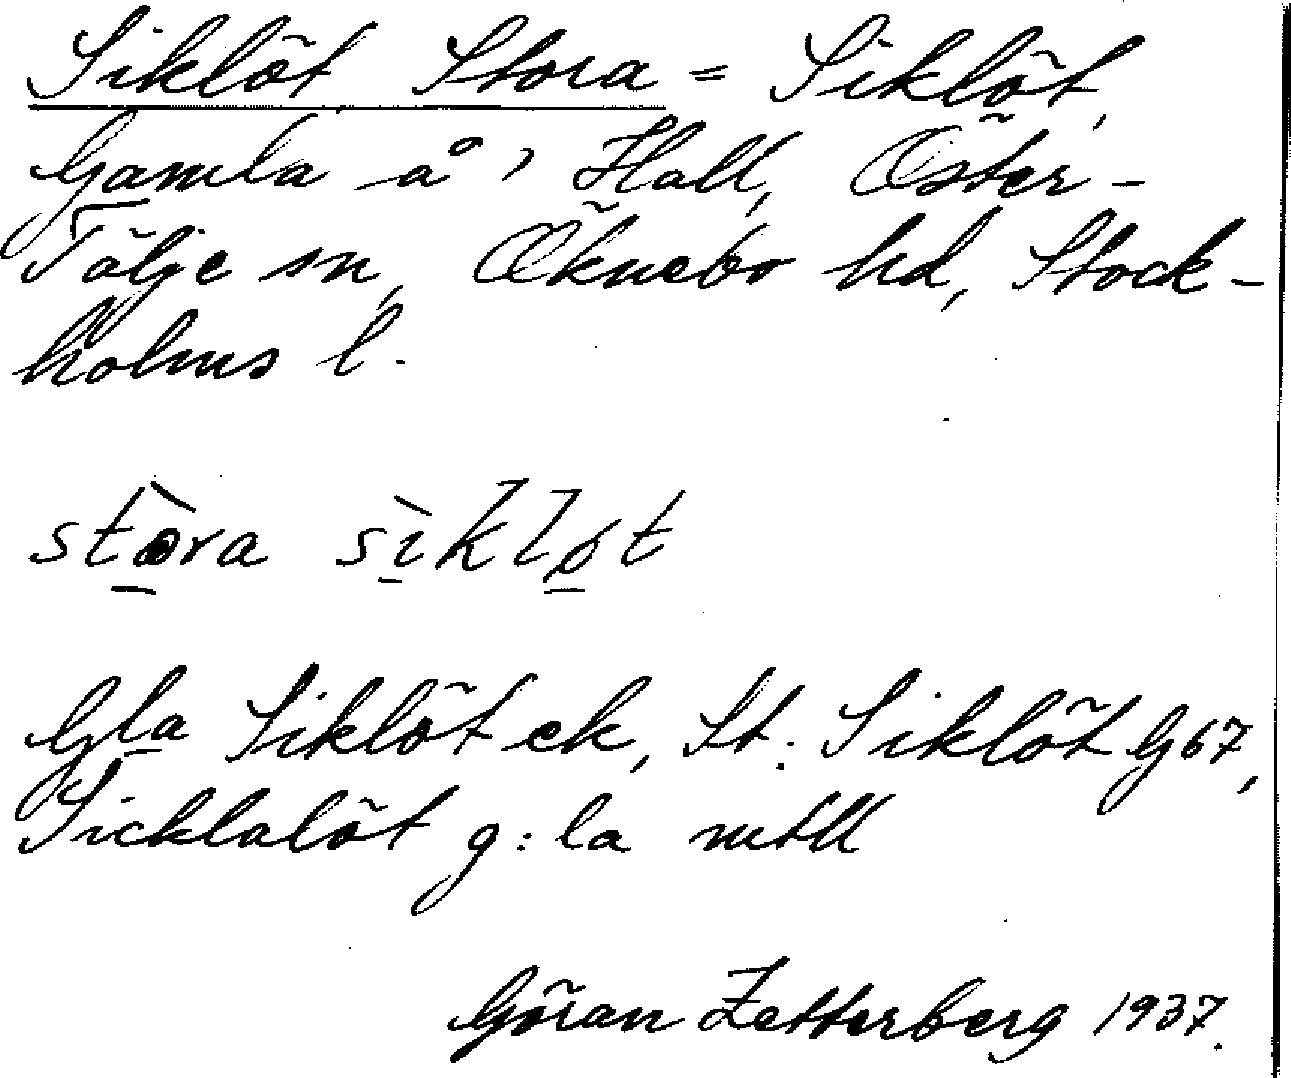 Siklöt, Stora = Siklöt,
Gamla å, Hall, Öster-
Tälje sn, Öknebo hd, Stock-
holms l.
stòra sìkløt
Gla Siklöt ek, St. Siklöt G67,
Sicklalöt g:la mtll
Göran Zetterberg 1937.